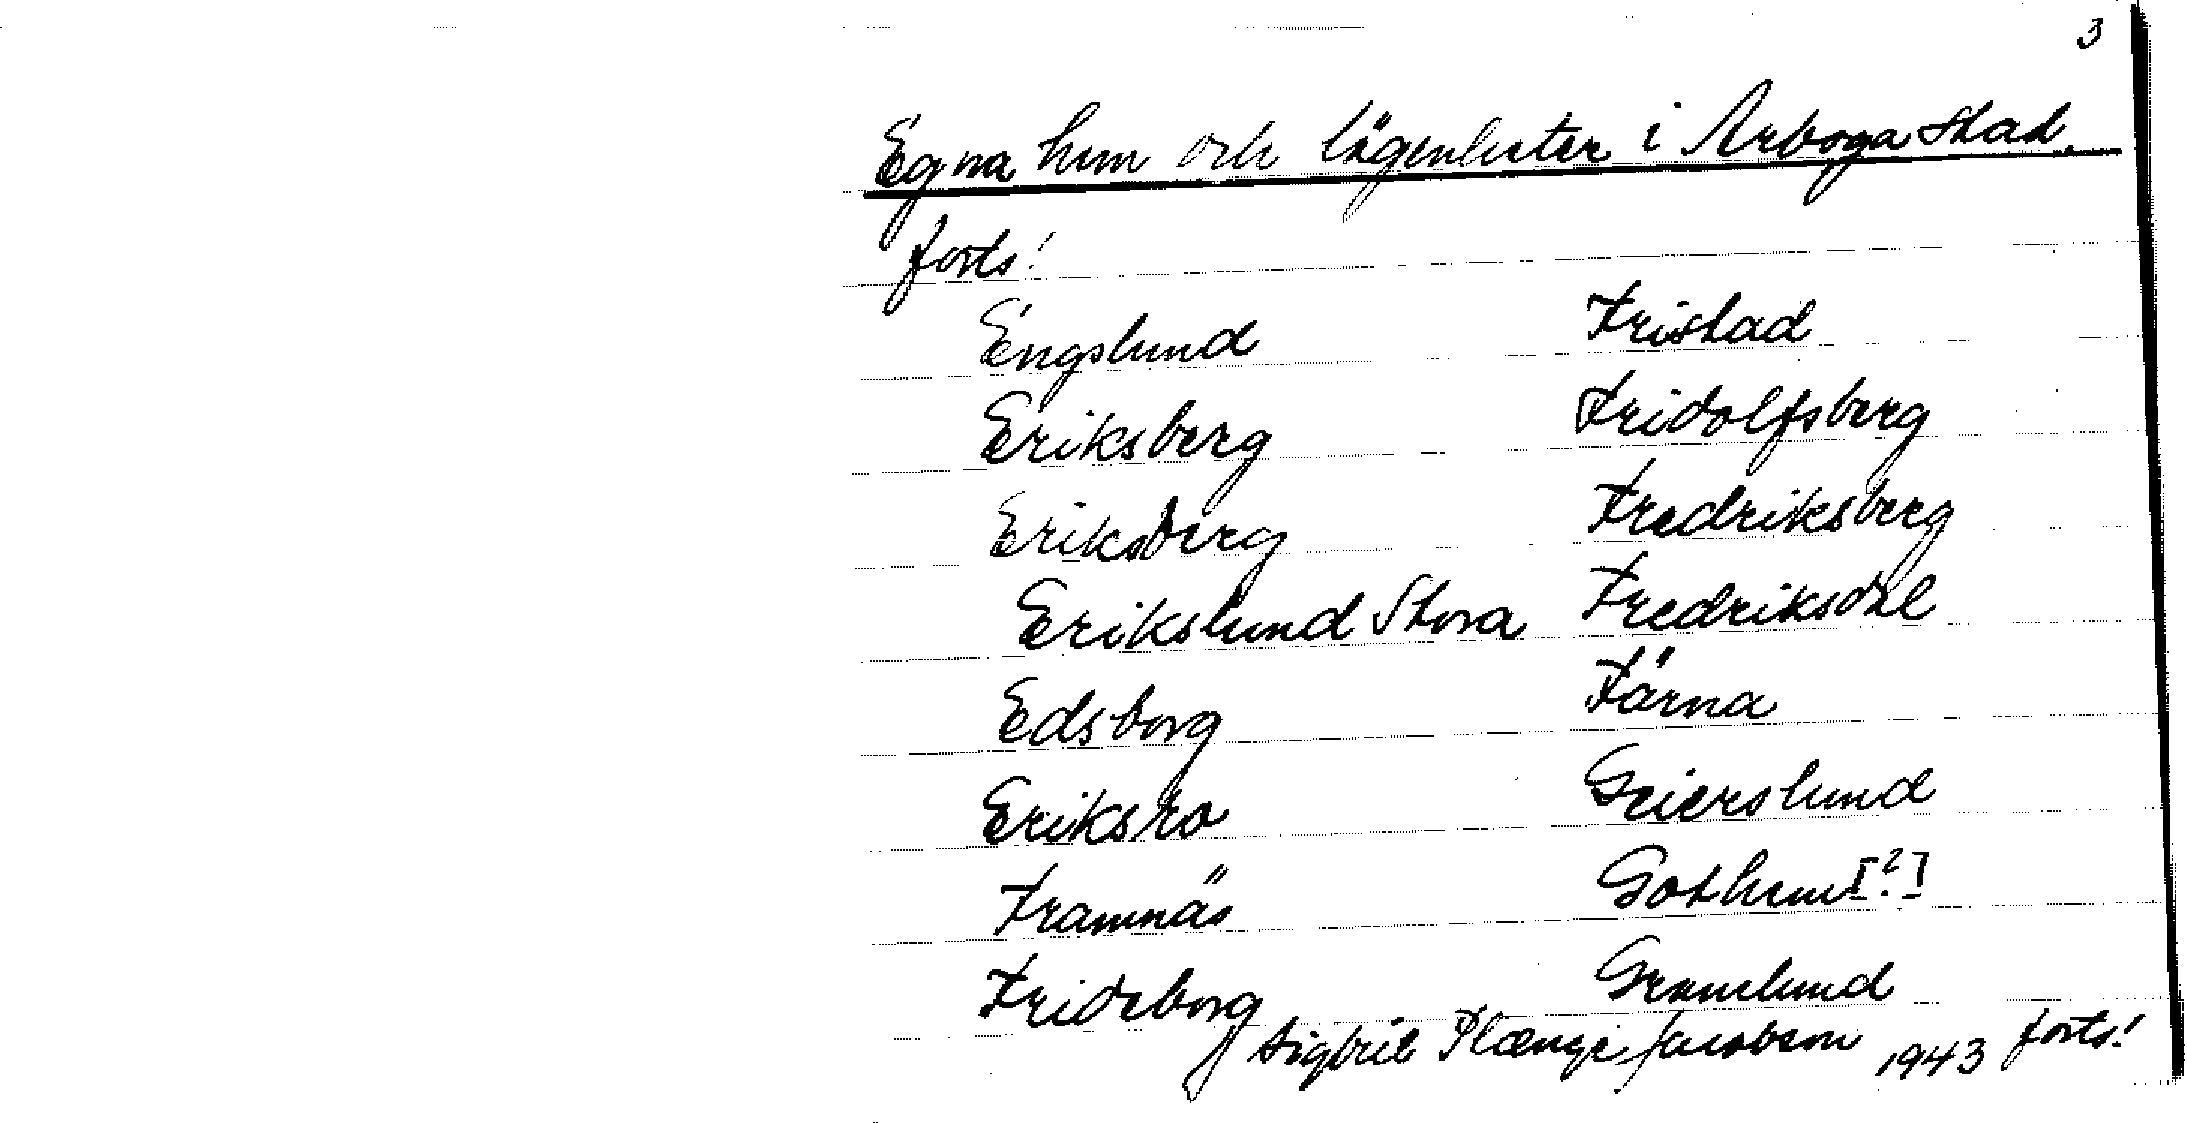 3
Egna hem och lägenheter i Arboga stad.
forts!
Engslund
Eriksberg
Eriksberg
Erikslund Stora
Edsborg
Eriksro
Framnäs
Frideborg
Fristad
Fridolfsberg
Fredriksberg
Fredriksdal
Färna
Geierslund
Gothem [?]
Granlund
Sigbrit Plænge Jacobson 1943 forts!